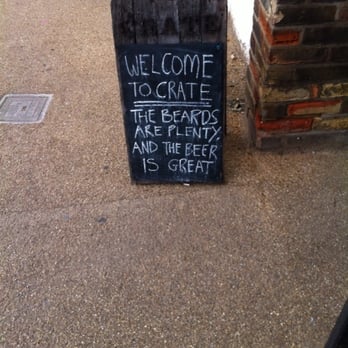 CRATE
WELCOME
TO CRATE
THE BEARDS
ARE PLENTY,
AND THE BEER
IS GREAT